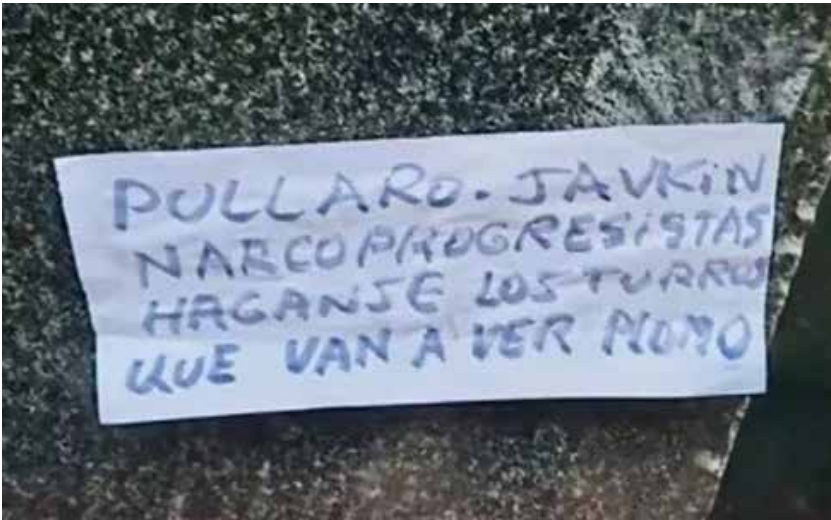 PULLARO. JAVKiN
NARCOPROGRESiSTAS
HAGANSE LOS TURROS
QUE VAN A VER PLOMO